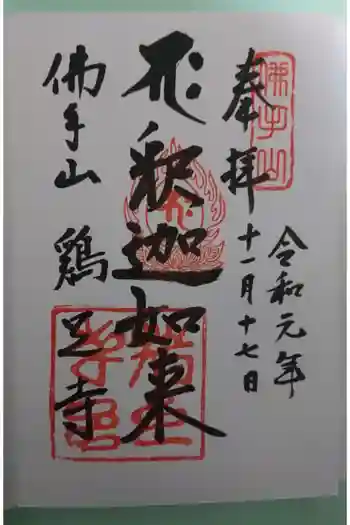 奉拝
令和元年
十一月十七日
釈迦如来
佛手山
鶏足寺
佛手山